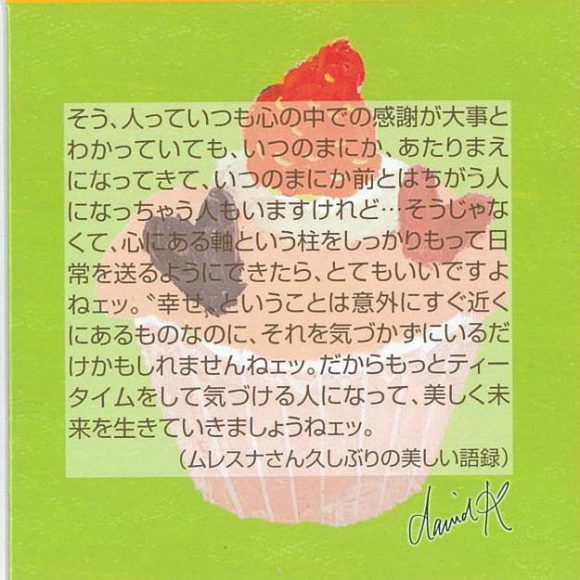 そう、人っていつも心の中での感謝が大事と
わかっていても、いつのまにか、あたりまえ
になってきて、いつのまにか前とはちがう人
になっちゃう人もいますけれど…そうじゃな
くて、心にある軸という柱をしっかりもって日
常を送るようにできたら、とてもいいですよ
ねェッ。〝幸せ〟ということは意外にすぐ近く
にあるものなのに、それを気づかずにいるだ
けかもしれませんねェッ。だからもっとティー
タイムをして気づける人になって、美しく未
来を生きていきましょうねェッ。
（ムレスナさん久しぶりの美しい語録）
david K